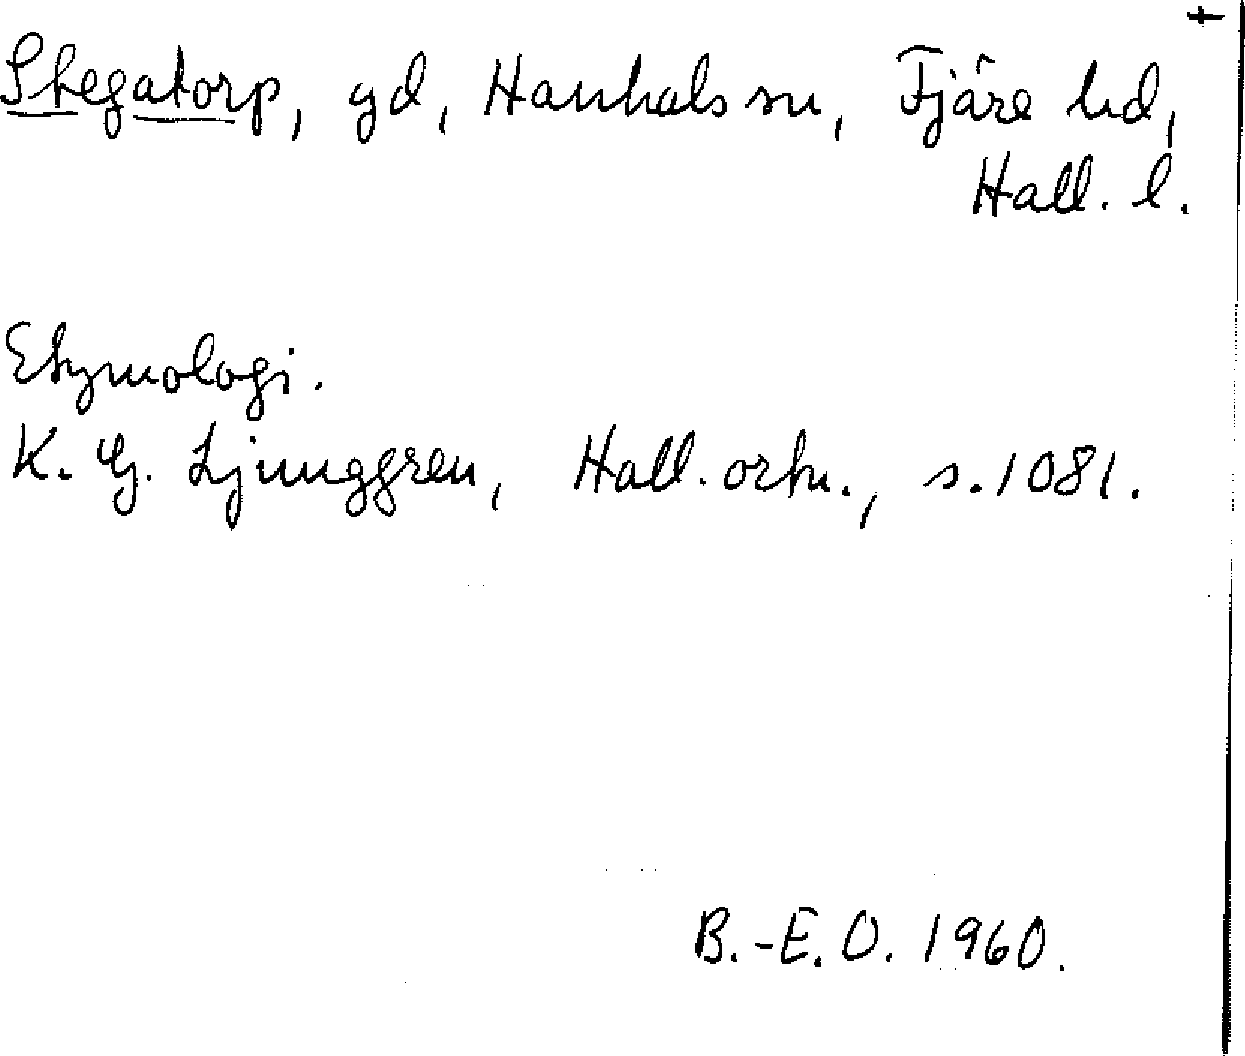 Stegatorp, gd, Hanhals sn, Fjäre hd,
Hall. l.
Etymologi.
K. G. Ljunggren, Hall. ortn., s. 1081.
B.-E. O. 1960.